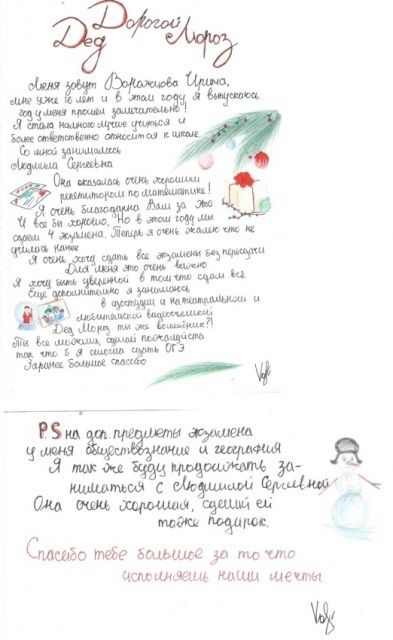 Дорогой
Дед Мороз
Меня зовут Ворожцова Ирина,
мне уже 16 лет и в этом году я выпускаюсь.
Год у меня прошел замечательно!
Я стала намного лучше учиться и
более ответственно относится к школе.
Со мной занималась
Людмила Сергеевна
Она оказалась очень хорошим
репетитором по математике!
Я очень благодарна Вам за это
И все бы хорошо, но в этом году мы
сдаем 4 экзамена. Теперь я очень жалею что не
училась ранее
Я очень хочу сдать все экзамены без пересдачи
Для меня это очень важно
Я хочу быть уверенной в том что сдам всё
Ещё дополнительно я занимаюсь
в изостудии и на театральной и
любительской видеосъемкой
Дед Мороз ты же волшебник?!
Ты все можешь, сделай пожалуйста
так что б я смогла сдать ОГЭ
Заранее большое спасибо
P.S на доп. предметы экзамена
у меня обществознание и география
Я так же буду продолжать за-
ниматься с Людмилой Сергеевной
Она очень хорошая, сделай ей
тоже подарок.
Спасибо тебе большое за то что
исполняешь наши мечты